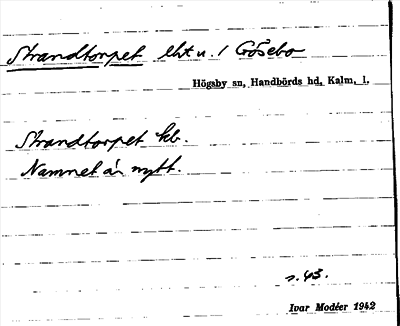 Strandtorpet lht u. 1 Gösebo
Högsby sn, Handbörds hd, Kalm. l.
Strandtorpet kb.
Namnet är nytt.
s. 43.
Ivar Modéer 1942